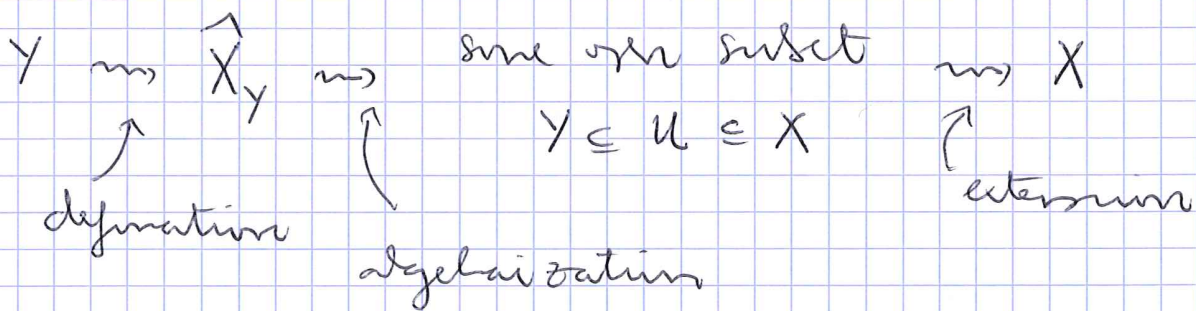 Y ⇝ X̂_Y ⇝ some open subset ⇝ X
Y ⊆ U ⊆ X
deformation
algebraization
extension